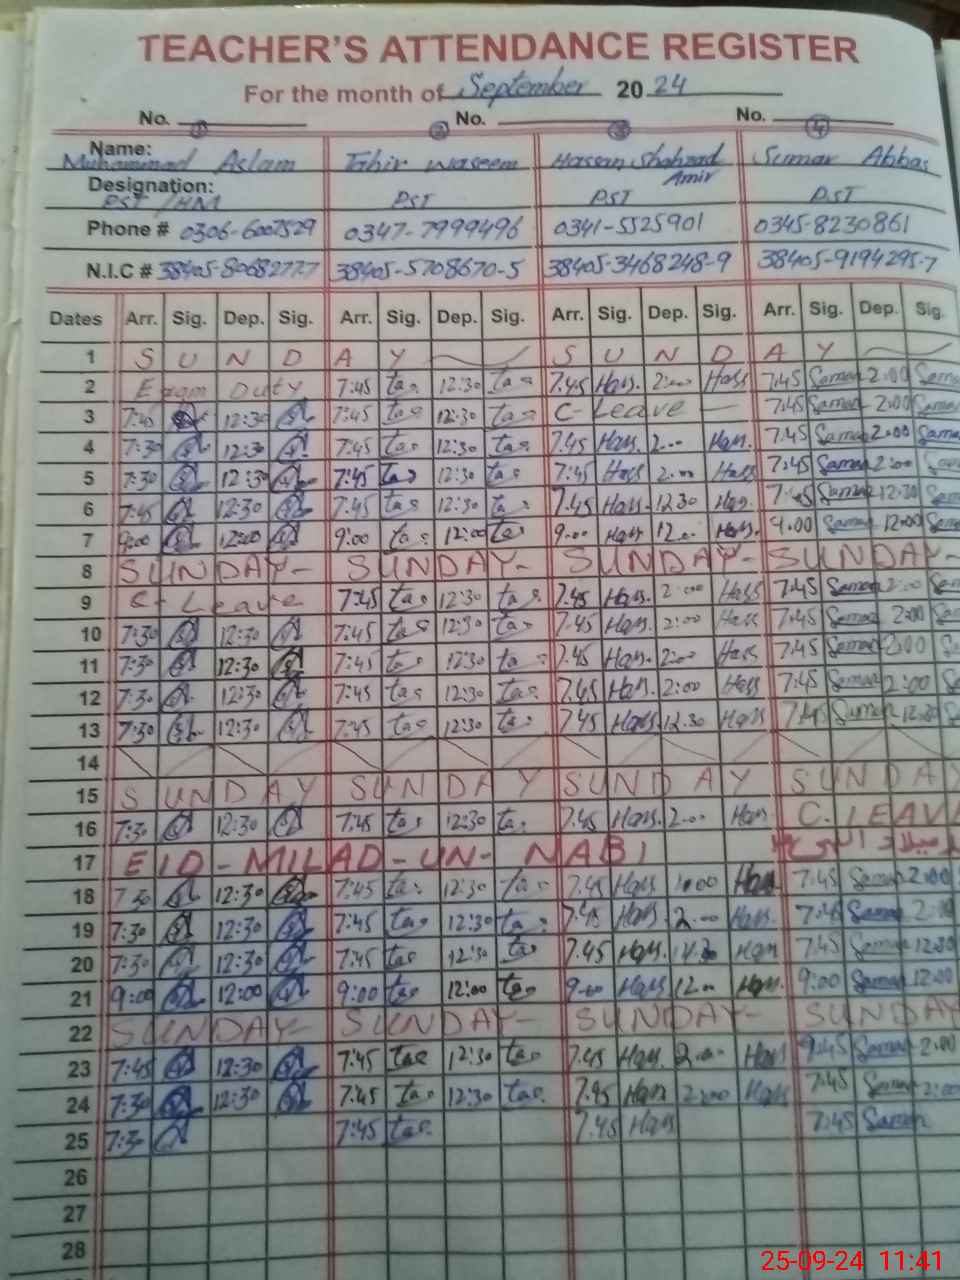 TEACHER'S ATTENDANCE REGISTER
For the month of September 20 24
No. 1 2 No. 3 No. 4
Name: Muhammad Aslam Tahir Waseem Hassan Shahzad Amir Sumar Abbas
Designation: PST / HM PST PST PST
Phone # 0306-6007529 0347-7999496 0341-5525901 0345-8230861
N.I.C # 38405-8068277-7 38405-5708670-5 38405-3468248-9 38405-9194295-7
Dates Arr. Sig. Dep. Sig. Arr. Sig. Dep. Sig. Arr. Sig. Dep. Sig. Arr. Sig. Dep. Sig.
1 SUNDAY SUNDAY
2 Exam Duty 7:45 tas 12:30 tas 7.45 Hass. 2:00 Hass 7:45 Saman 2:00 Sam
3 7:45 12:30 7:45 tas 12:30 tas C-Leave 7:45 Saman 2:00 Sam
4 7:30 12:30 7:45 tas 12:30 tas 7.45 Hass 2.00 Hass. 7:45 Saman 2:00 Sam
5 7:30 12:30 7:45 tas 12:30 tas 7:45 Hass 2:00 Hass 7:45 Saman 2:00
6 7:45 12:30 7:45 tas 12:30 tas 7.45 Hass. 12.30 Hass. 7:45 Saman 12:30 Sam
7 9:00 12:00 9:00 tas 12:00 tas 9.00 Hass 12.00 Hass. 9:00 Saman 12:00 Sam
8 SUNDAY- SUNDAY- SUNDAY- SUNDAY-
9 C-Leave 7:45 tas 12:30 tas 7.45 Hass. 2:00 Hass 7:45 Saman 2:00 Sam
10 7:30 12:30 7:45 tas 12:30 tas 7.45 Hass. 2:00 Hass 7:45 Saman 2:00 Sa
11 7:30 12:30 7:45 tas 12:30 tas 7.45 Hass. 2:00 Hass 7:45 Saman 2:00 Sa
12 7:30 12:30 7:45 tas 12:30 tas. 7.45 Hass. 2:00 Hass 7:45 Saman 2:00 S
13 7:30 12:30 7:45 tas 12:30 tas 7.45 Hass. 12.30 Hass 7:45 Saman 12:30 Sa
14
15 SUNDAY SUNDAY SUNDAY SUNDAY
16 7:30 12:30 7:45 tas 12:30 tas 7.45 Hass. 2.00 Hass C. LEAV
17 EID-MILAD-UN-NABI
18 7:30 12:30 7:45 tas 12:30 tas 7.45 Hass Hass 7:45 Saman 2:00
19 7:30 12:30 7:45 tas 12:30 tas 7.45 Hass. 2.00 Hass. 7:45 Saman 2:00
20 7:30 12:30 7:45 tas 12:30 tas 7.45 Hass. Hass 7:45 Saman 12:30
21 9:00 12:00 9:00 tas 12:00 tas 9.00 Hass 12.00 Hass. 9:00 Saman 12:00
22 SUNDAY- SUNDAY- SUNDAY- SUNDAY
23 7:45 12:30 7:45 tas 12:30 tas 7.45 Hass. 2.00 Hass Saman 2:00
24 7:30 12:30 7:45 tas 12:30 tas. 7.45 Hass 2:00 Hass 7:45 Saman 2:00
25 7:30 7:45 tas. 7.45 Hass 7:45 Saman
26
27
28
25-09-24 11:41